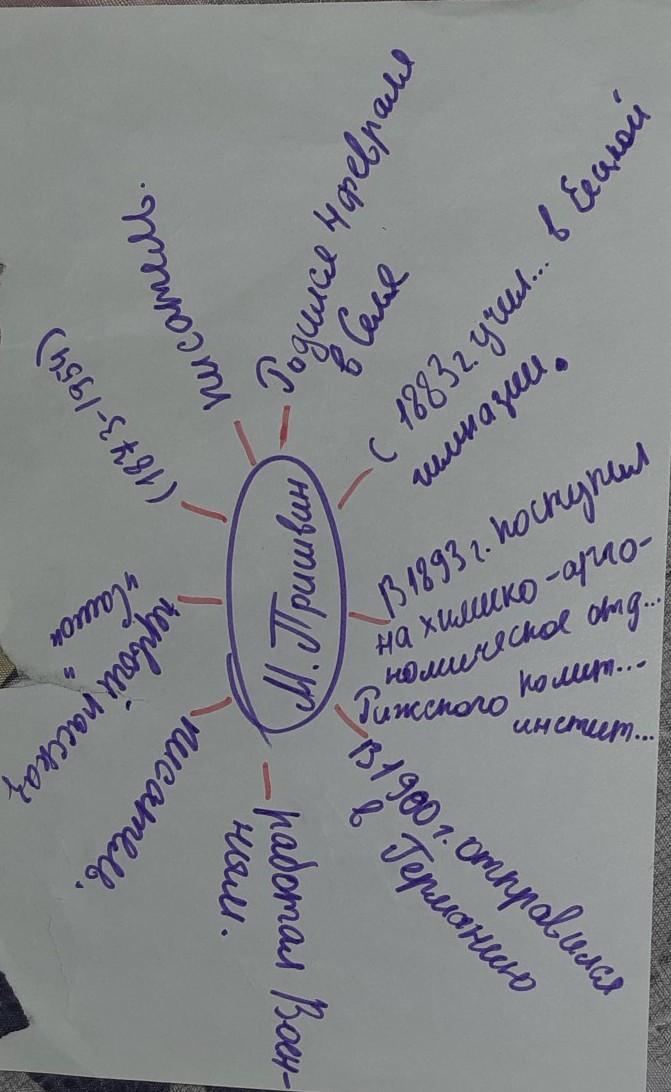 М. Пришвин
(1873-1954)
писатель.
Родился 4 февраля
в Селе
С 1883г. учил... в Елецкой
гимназии.
В 1893г. поступил
на химико-агро-
номическое отд...
Рижского полит...
инстит...
В 1900г. отправился
в Германию
работал Воен-
ным.
писатель.
первый рассказ
"Сашок"